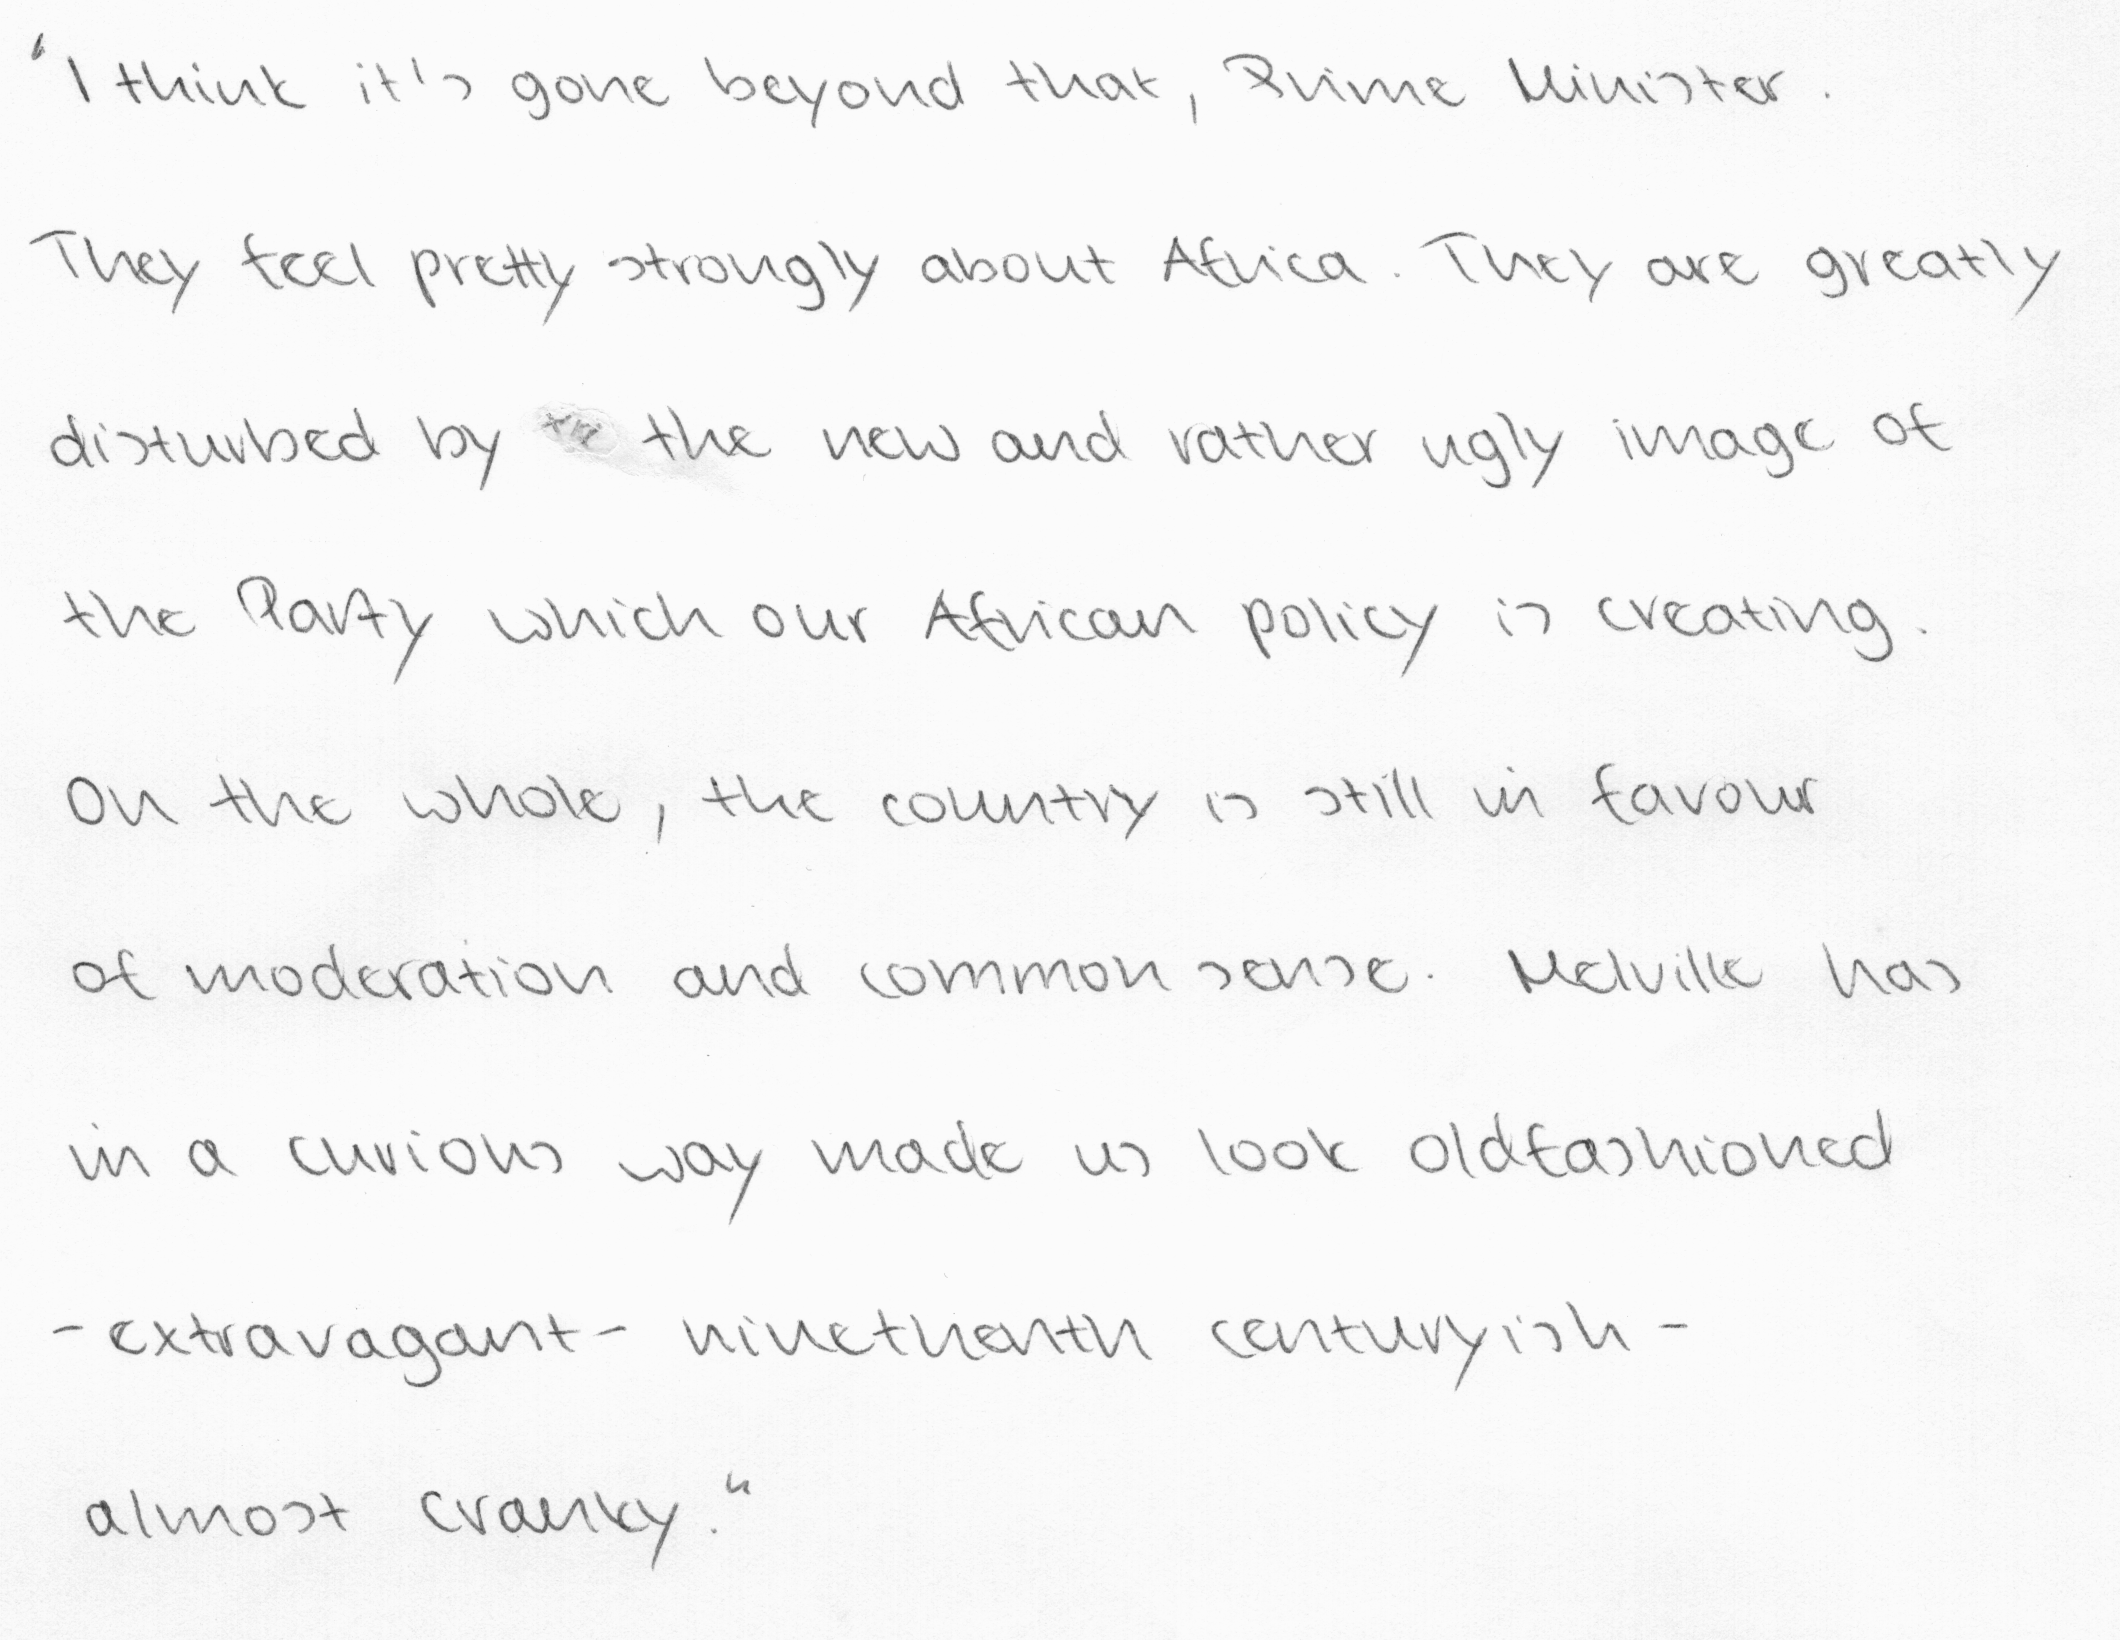 "I think it's gone beyond that, Prime Minister.
They feel pretty strongly about Africa. They are greatly
disturbed by the new and rather ugly image of
the Party which our African policy is creating.
On the whole, the country is still in favour
of moderation and common sense. Melville has
in a curious way made us look oldfashioned
- extravagant - ninetheenth centuryish -
almost cranky."